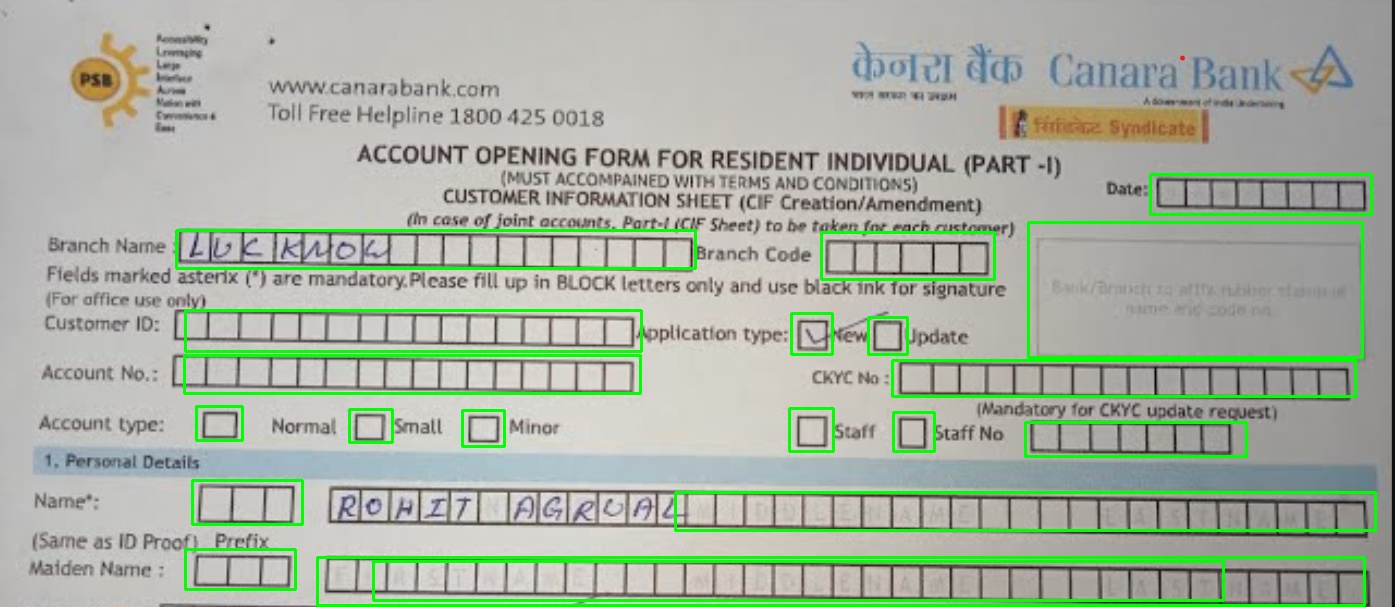 Accessibility
Leveraging
Large
Interface
Across
Nation with
Convenience &
Ease
PSB
www.canarabank.com
Toll Free Helpline 1800 425 0018
केनरा बैंक Canara Bank
A Government of India Undertaking
सिंडिकेट Syndicate
ACCOUNT OPENING FORM FOR RESIDENT INDIVIDUAL (PART -I)
(MUST ACCOMPAINED WITH TERMS AND CONDITIONS)
CUSTOMER INFORMATION SHEET (CIF Creation/Amendment)
Date:
(In case of joint accounts, Part-I (CIF Sheet) to be taken for each customer)
Branch Name : LUCKNOW Branch Code
Fields marked asterix (*) are mandatory.Please fill up in BLOCK letters only and use black ink for signature
Bank/Branch to affix rubber stamp of
name and code no.
(For office use only)
Customer ID: Application type: New Update
Account No.: CKYC No :
(Mandatory for CKYC update request)
Account type: Normal Small Minor Staff Staff No
1. Personal Details
Name*: ROHIT AGRUAL MIDDLENAME LASTNAME
(Same as ID Proof) Prefix
Maiden Name : FIRSTNAME MIDDLENAME LASTNAME